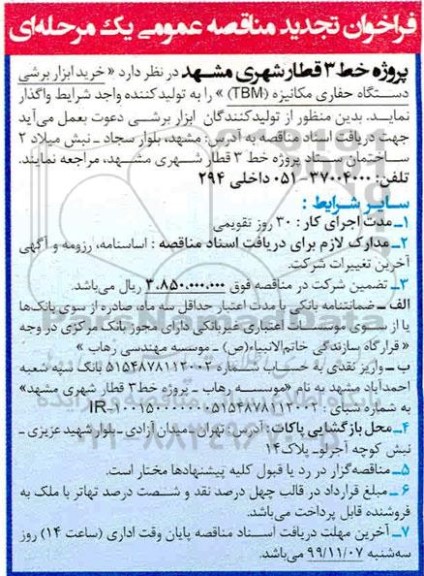 فراخوان تجدید مناقصه عمومی یک مرحله‌ای
پروژه خط ۳ قطار شهری مشهد در نظر دارد « خرید ابزار برشی
دستگاه حفاری مکانیزه (TBM) » را به تولیدکننده واجد شرایط واگذار
نماید. بدین منظور از تولیدکنندگان ابزار برشی دعوت بعمل می‌آید
جهت دریافت اسناد مناقصه به آدرس: مشهد، بلوار سجاد - نبش میلاد ۲
ساختمان ستاد پروژه خط ۳ قطار شهری مشهد، مراجعه نمایند.
تلفن: ۳۷۰۰۴۰۰۰-۰۵۱ داخلی ۲۹۴
سایر شرایط :
۱- مدت اجرای کار : ۳۰ روز تقویمی
۲- مدارک لازم برای دریافت اسناد مناقصه : اساسنامه، رزومه و آگهی
آخرین تغییرات شرکت.
۳- تضمین شرکت در مناقصه فوق ۳،۸۵۰،۰۰۰،۰۰۰ ریال می‌باشد.
الف - ضمانتنامه بانکی با مدت اعتبار حداقل سه ماه، صادره از سوی بانک‌ها
یا از سوی موسسات اعتباری غیربانکی دارای مجوز بانک مرکزی در وجه
« قرارگاه سازندگی خاتم‌الانبیاء(ص) - موسسه مهندسی رهاب »
ب - واریز نقدی به حساب شماره ۵۱۵۴۸۷۸۱۱۲۰۰۲ بانک سپه شعبه
احمدآباد مشهد به نام «موسسه رهاب - پروژه خط ۳ قطار شهری مشهد»
به شماره شبای : IR-
۴- محل بازگشایی پاکات : آدرس : تهران - میدان آزادی - بلوار شهید عزیزی -
نبش کوچه آجرلو - پلاک ۱۴
۵- مناقصه‌گزار در رد یا قبول کلیه پیشنهادها مختار است.
۶- مبلغ قرارداد در قالب چهل درصد نقد و شصت درصد تهاتر با ملک به
فروشنده قابل پرداخت می‌باشد.
۷- آخرین مهلت دریافت اسناد مناقصه پایان وقت اداری (ساعت ۱۴) روز
سه‌شنبه ۹۹/۱۱/۰۷ می‌باشد.